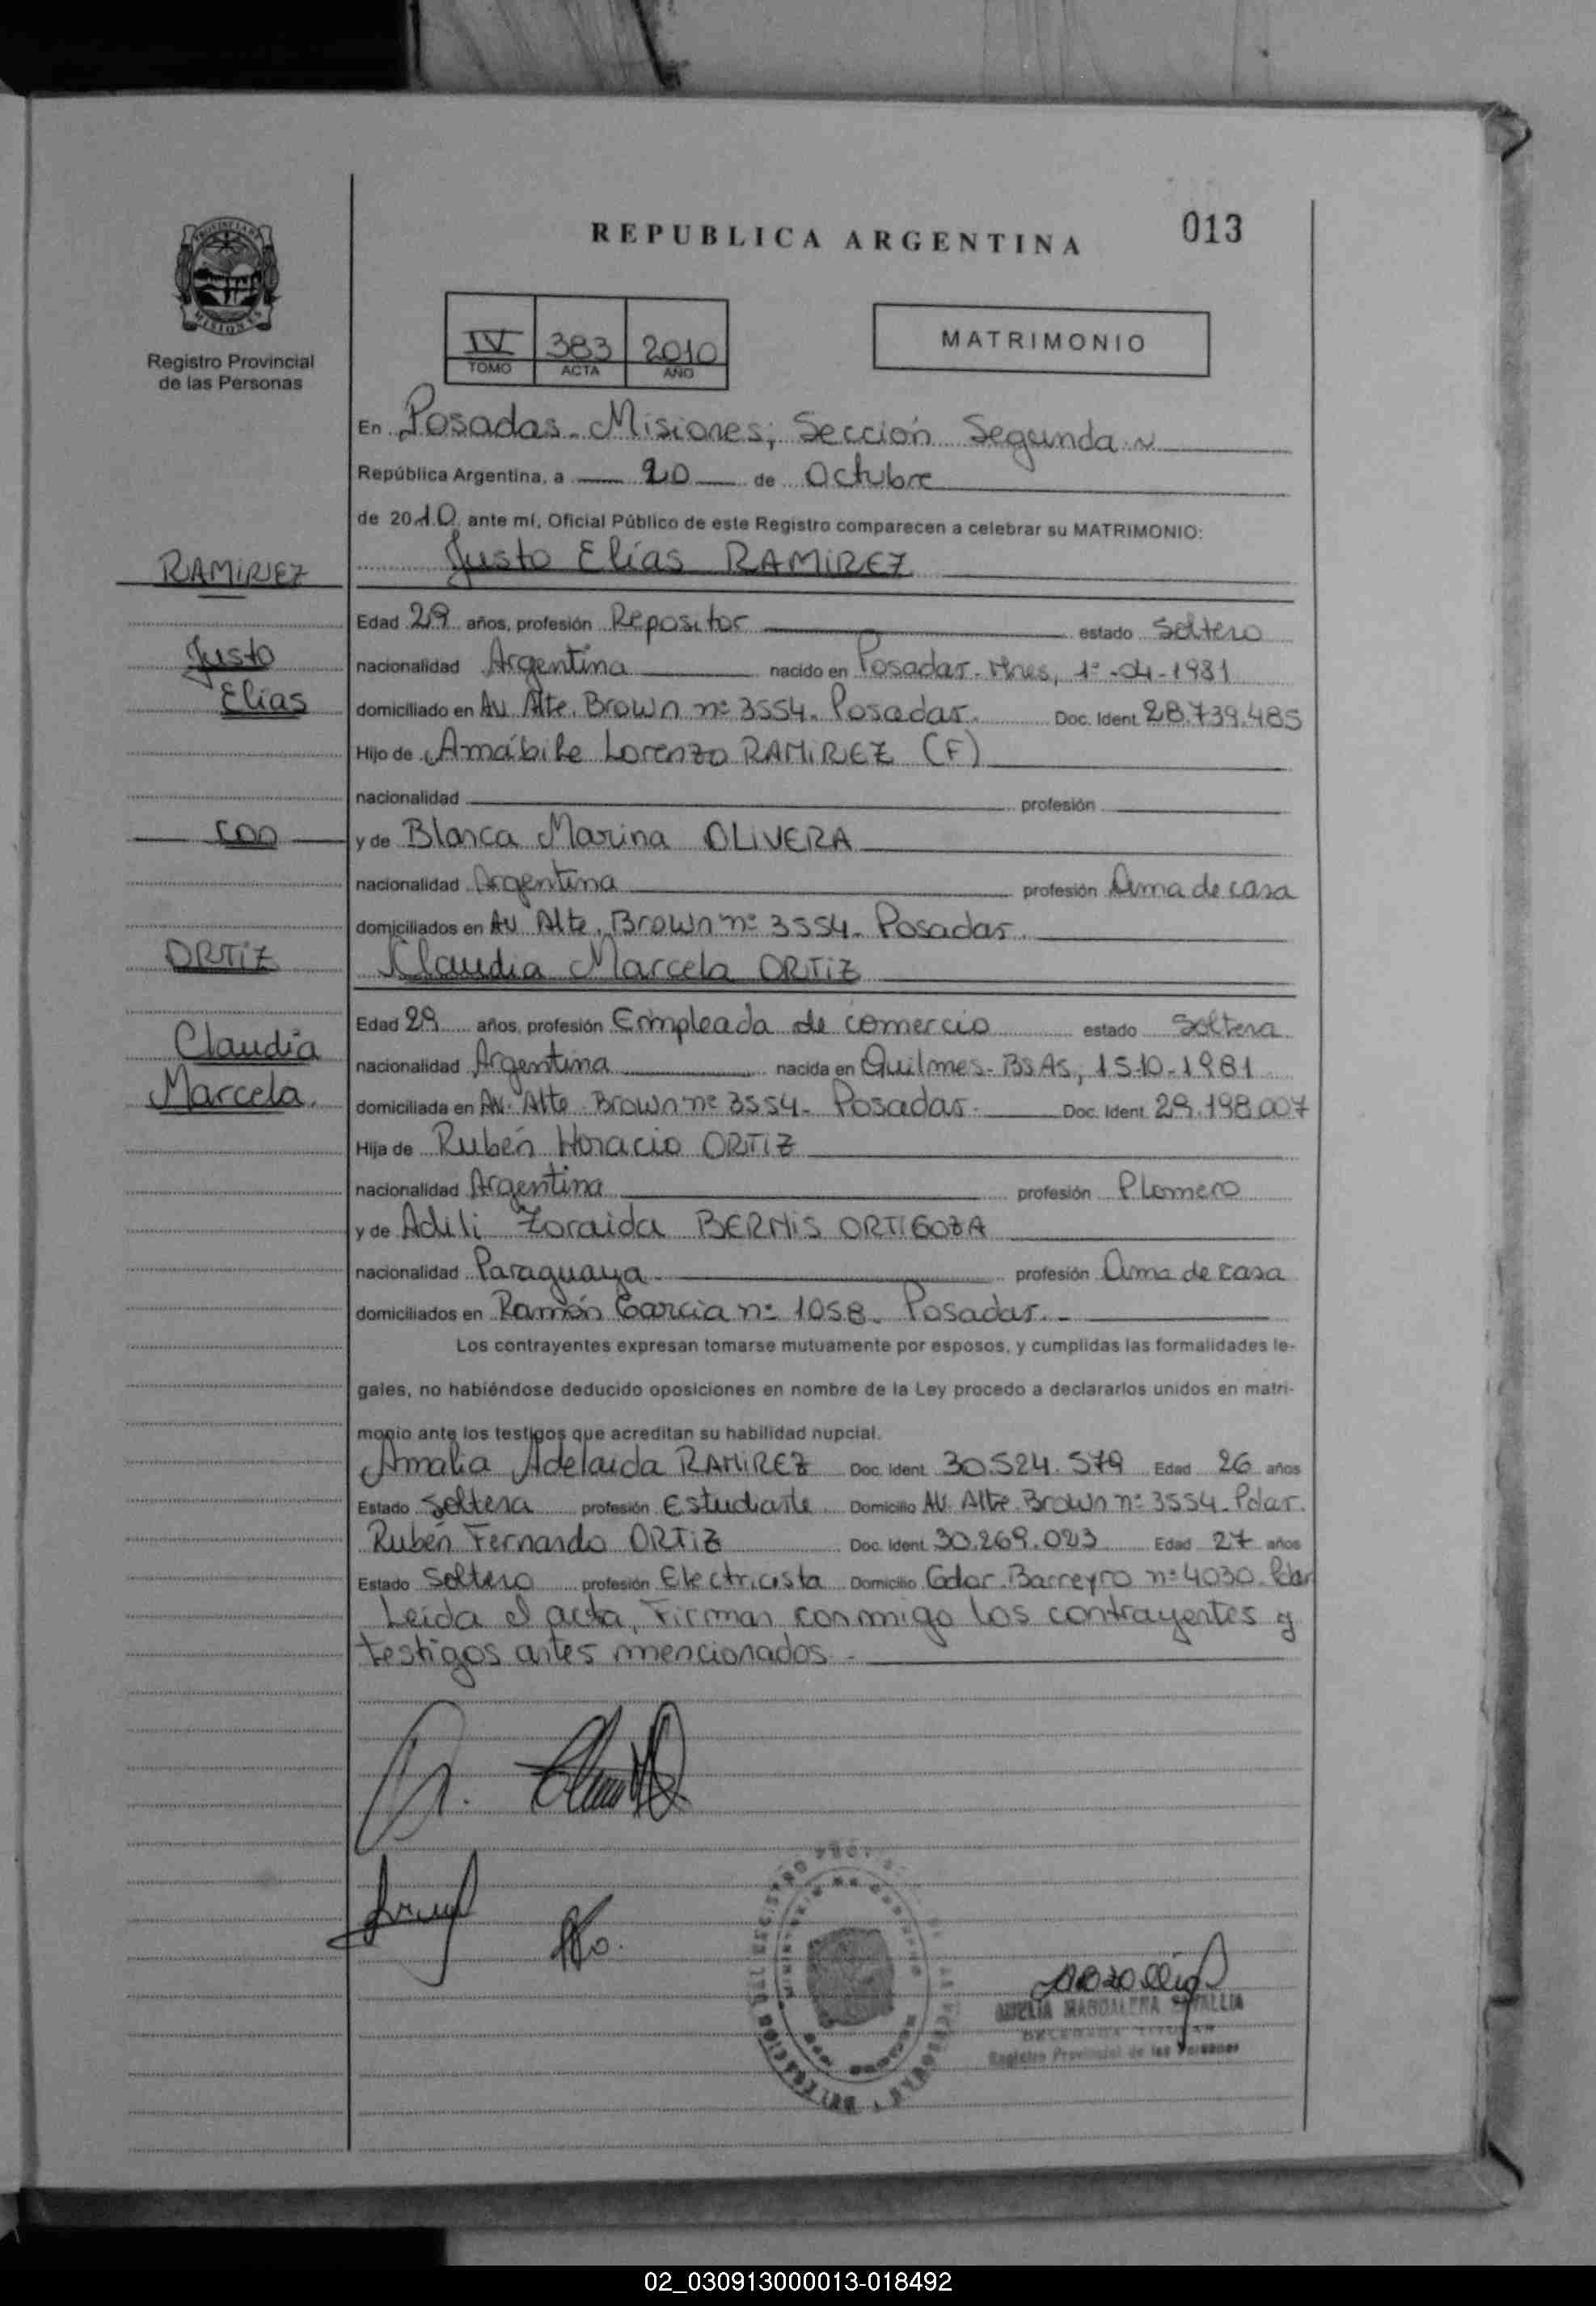 REPUBLICA ARGENTINA
013
PROVINCIA DE
MISIONES
Registro Provincial
de las Personas
IV 383 2010
TOMO ACTA AÑO
MATRIMONIO
En Posadas - Misiones; Sección Segunda
República Argentina, a 20 de Octubre
de 2010 ante mí, Oficial Público de este Registro comparecen a celebrar su MATRIMONIO:
RAMIREZ
Justo Elías RAMIREZ
Edad 29 años, profesión Repositor estado Soltero
Justo
nacionalidad Argentina nacido en Posadas. Mnes, 1º-04-1981
Elías
domiciliado en Av. Alte. Brown nº 3554. Posadas. Doc. Ident. 28.739.485
Hijo de Amábile Lorenzo RAMIREZ (F)
nacionalidad profesión
con
y de Blanca Marina OLIVERA
nacionalidad Argentina profesión Ama de casa
domiciliados en Av. Alte. Brown nº 3554. Posadas.
ORTIZ
Claudia Marcela ORTIZ
Edad 29 años, profesión Empleada de comercio estado Soltera
Claudia
nacionalidad Argentina nacida en Quilmes - Bs As, 15-10-1981
Marcela.
domiciliada en Av. Alte. Brown nº 3554. Posadas. Doc. Ident. 29.198.007
Hija de Rubén Horacio ORTIZ
nacionalidad Argentina profesión Plomero
y de Adili Zoraida BERNIS ORTIGOZA
nacionalidad Paraguaya profesión Ama de casa
domiciliados en Ramón García nº 1058. Posadas.
Los contrayentes expresan tomarse mutuamente por esposos, y cumplidas las formalidades le-
gales, no habiéndose deducido oposiciones en nombre de la Ley procedo a declararlos unidos en matri-
monio ante los testigos que acreditan su habilidad nupcial.
Amalia Adelaida RAMIREZ Doc. Ident. 30.524.579 Edad 26 años
Estado Soltera profesión Estudiante Domicilio Av. Alte. Brown nº 3554. Pdas.
Rubén Fernando ORTIZ Doc. Ident. 30.269.023 Edad 27 años
Estado Soltero profesión Electricista Domicilio Gdor. Barreyro nº 4030. Pdas
Leída el acta, Firman conmigo los contrayentes y
testigos antes mencionados.
MAGDALENA
Registro Provincial de las Personas
02_030913000013-018492